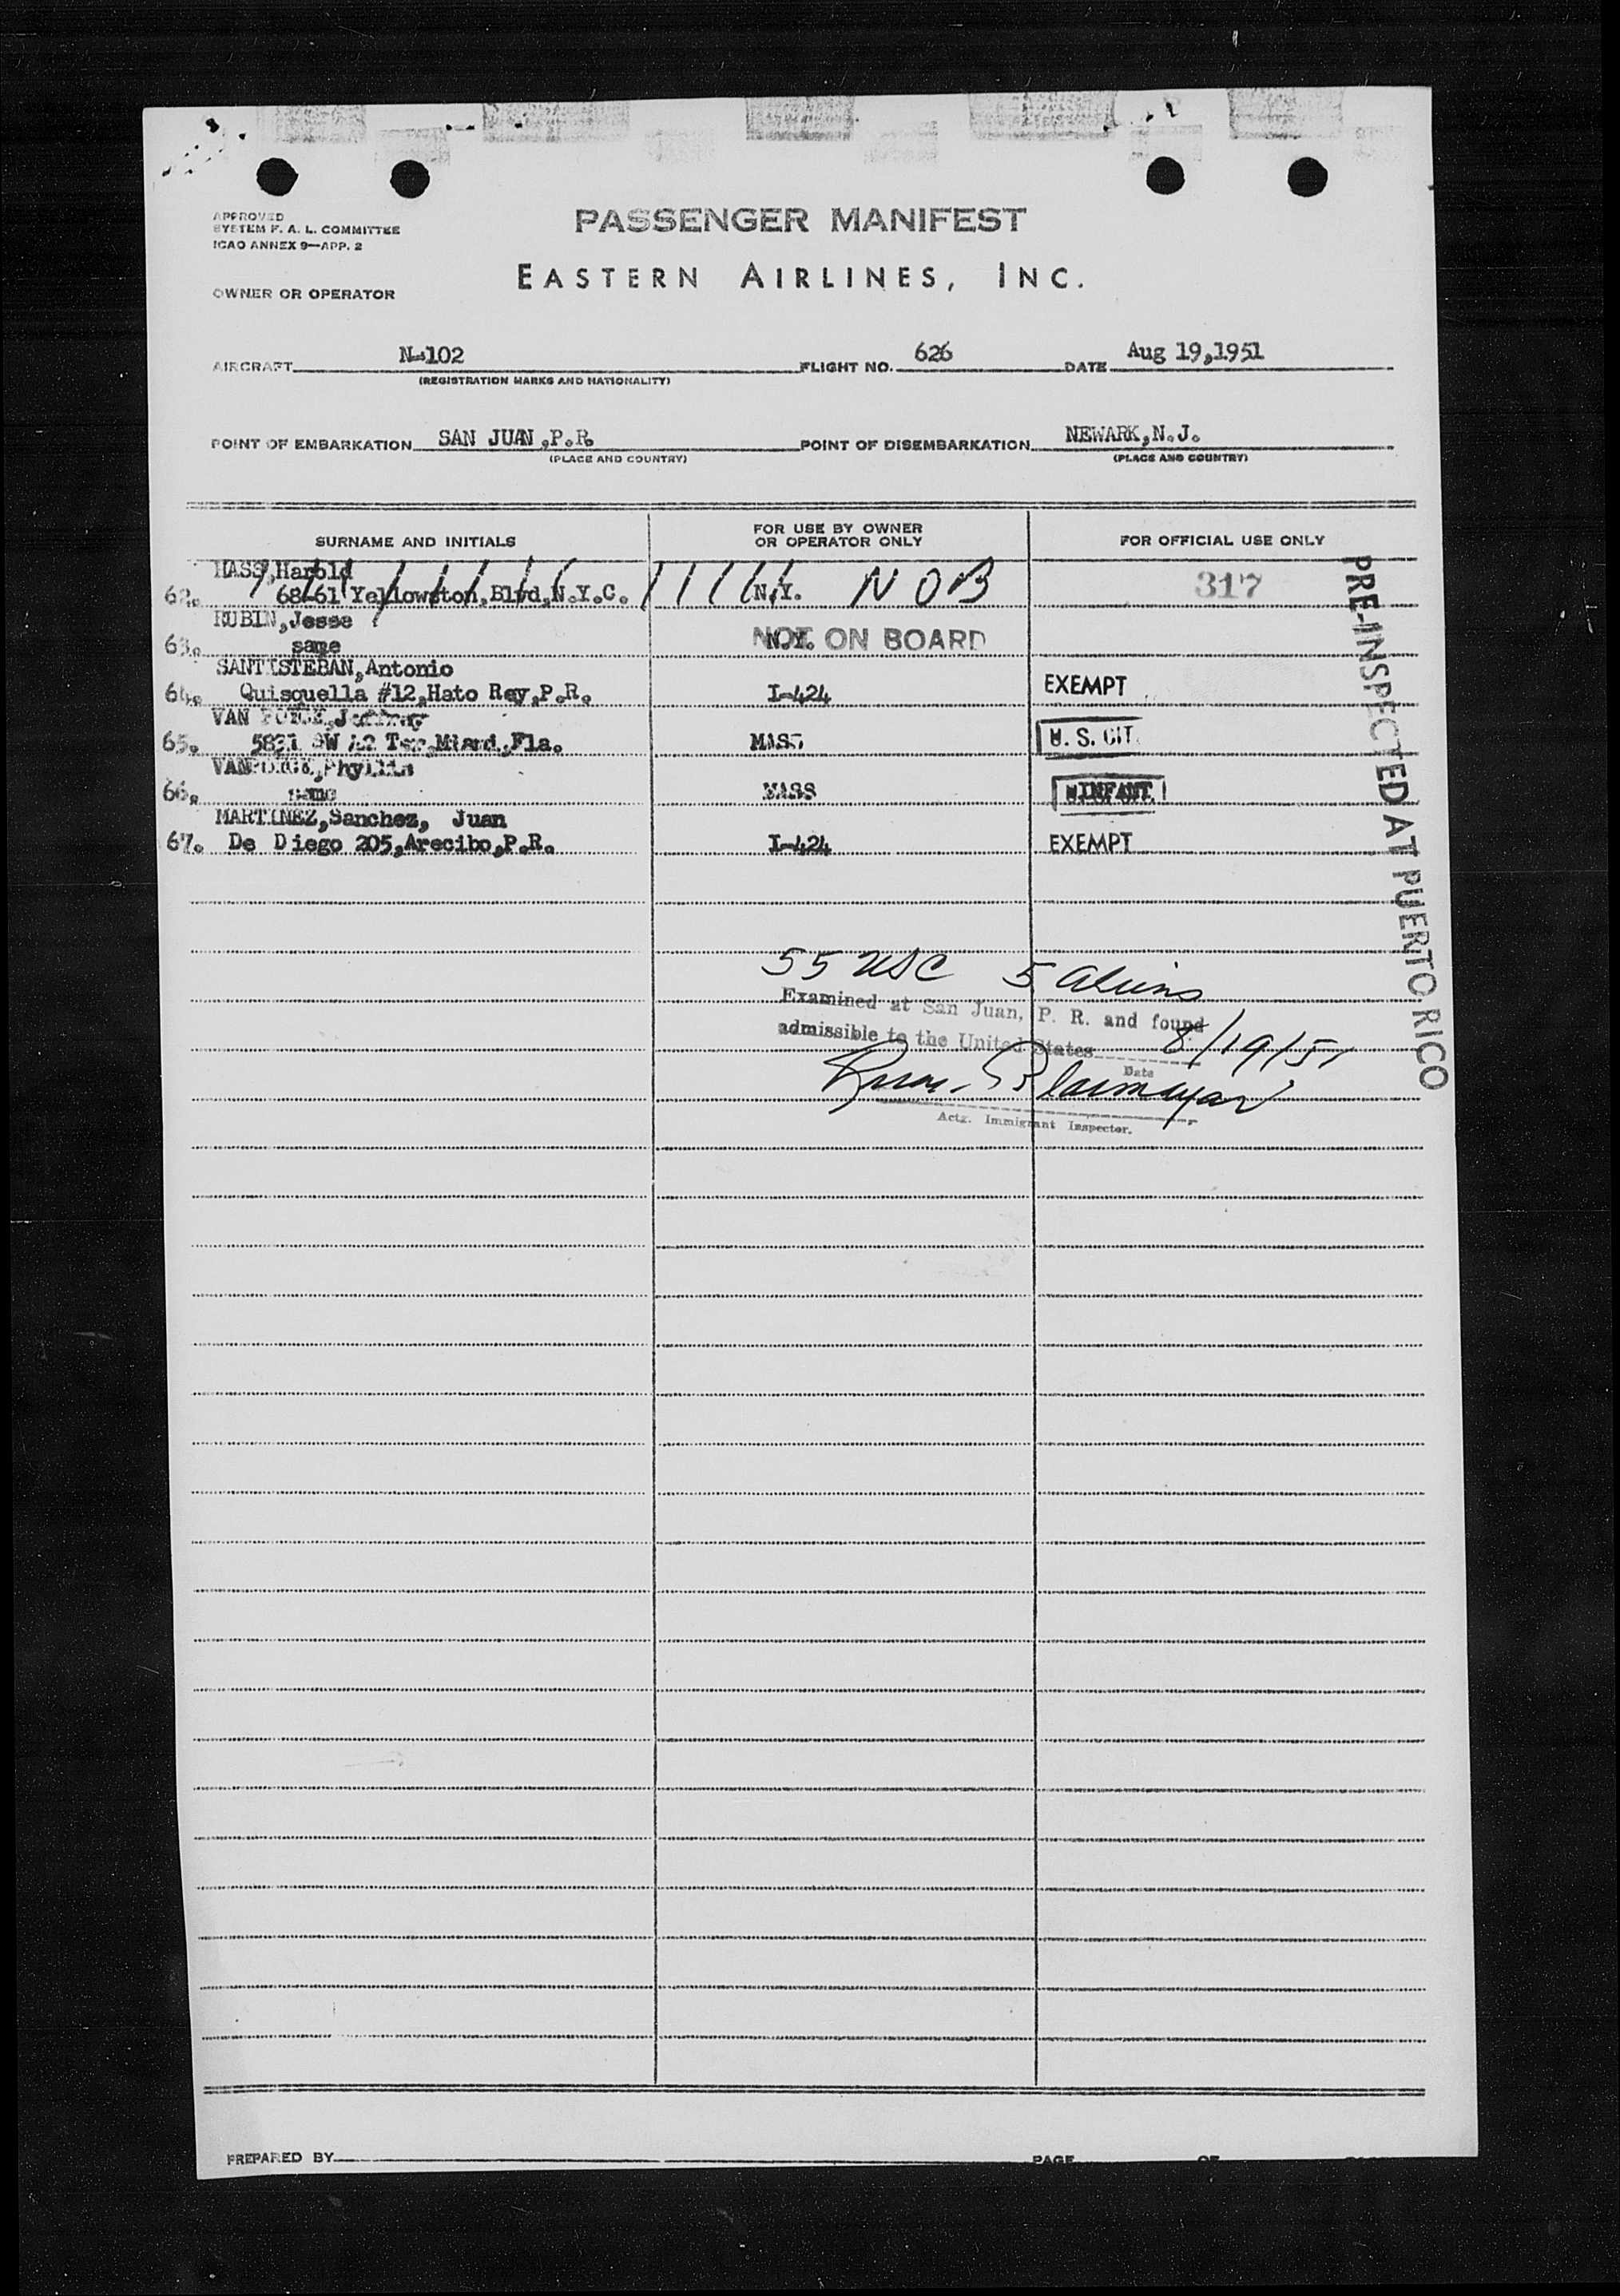 APPROVED
SYSTEM F. A. L. COMMITTEE
ICAO ANNEX 9—APP. 2
PASSENGER MANIFEST
EASTERN AIRLINES, INC.
OWNER OR OPERATOR
AIRCRAFT N-102 FLIGHT NO. 626 DATE Aug 19,1951
(REGISTRATION MARKS AND NATIONALITY)
POINT OF EMBARKATION SAN JUAN,P.R. POINT OF DISEMBARKATION NEWARK,N.J.
(PLACE AND COUNTRY) (PLACE AND COUNTRY)
SURNAME AND INITIALS FOR USE BY OWNER OR OPERATOR ONLY FOR OFFICIAL USE ONLY
Harold
62. 68-61 Yellowston,Blvd,N.Y.C. N.Y. NOB 317
RUBIN,Jesse
63. same N.Y. NOT ON BOARD
SANTISTEBAN,Antonio
64. Quisquella #12,Hato Rey,P.R. I-424 EXEMPT
VAN
65. SW Ter,Miami,Fla. MASS U. S. CIT.
Phyllis
66. same MASS INFANT
MARTINEZ,Sanchez, Juan
67. De Diego 205,Arecibo,P.R. I-424 EXEMPT
PRE-INSPECTED AT PUERTO RICO
55 USC 5 aliens
Examined at San Juan, P. R. and found
admissible to the United States 8/19/51
Date
Actg. Immigrant Inspector.
PREPARED BY PAGE OF